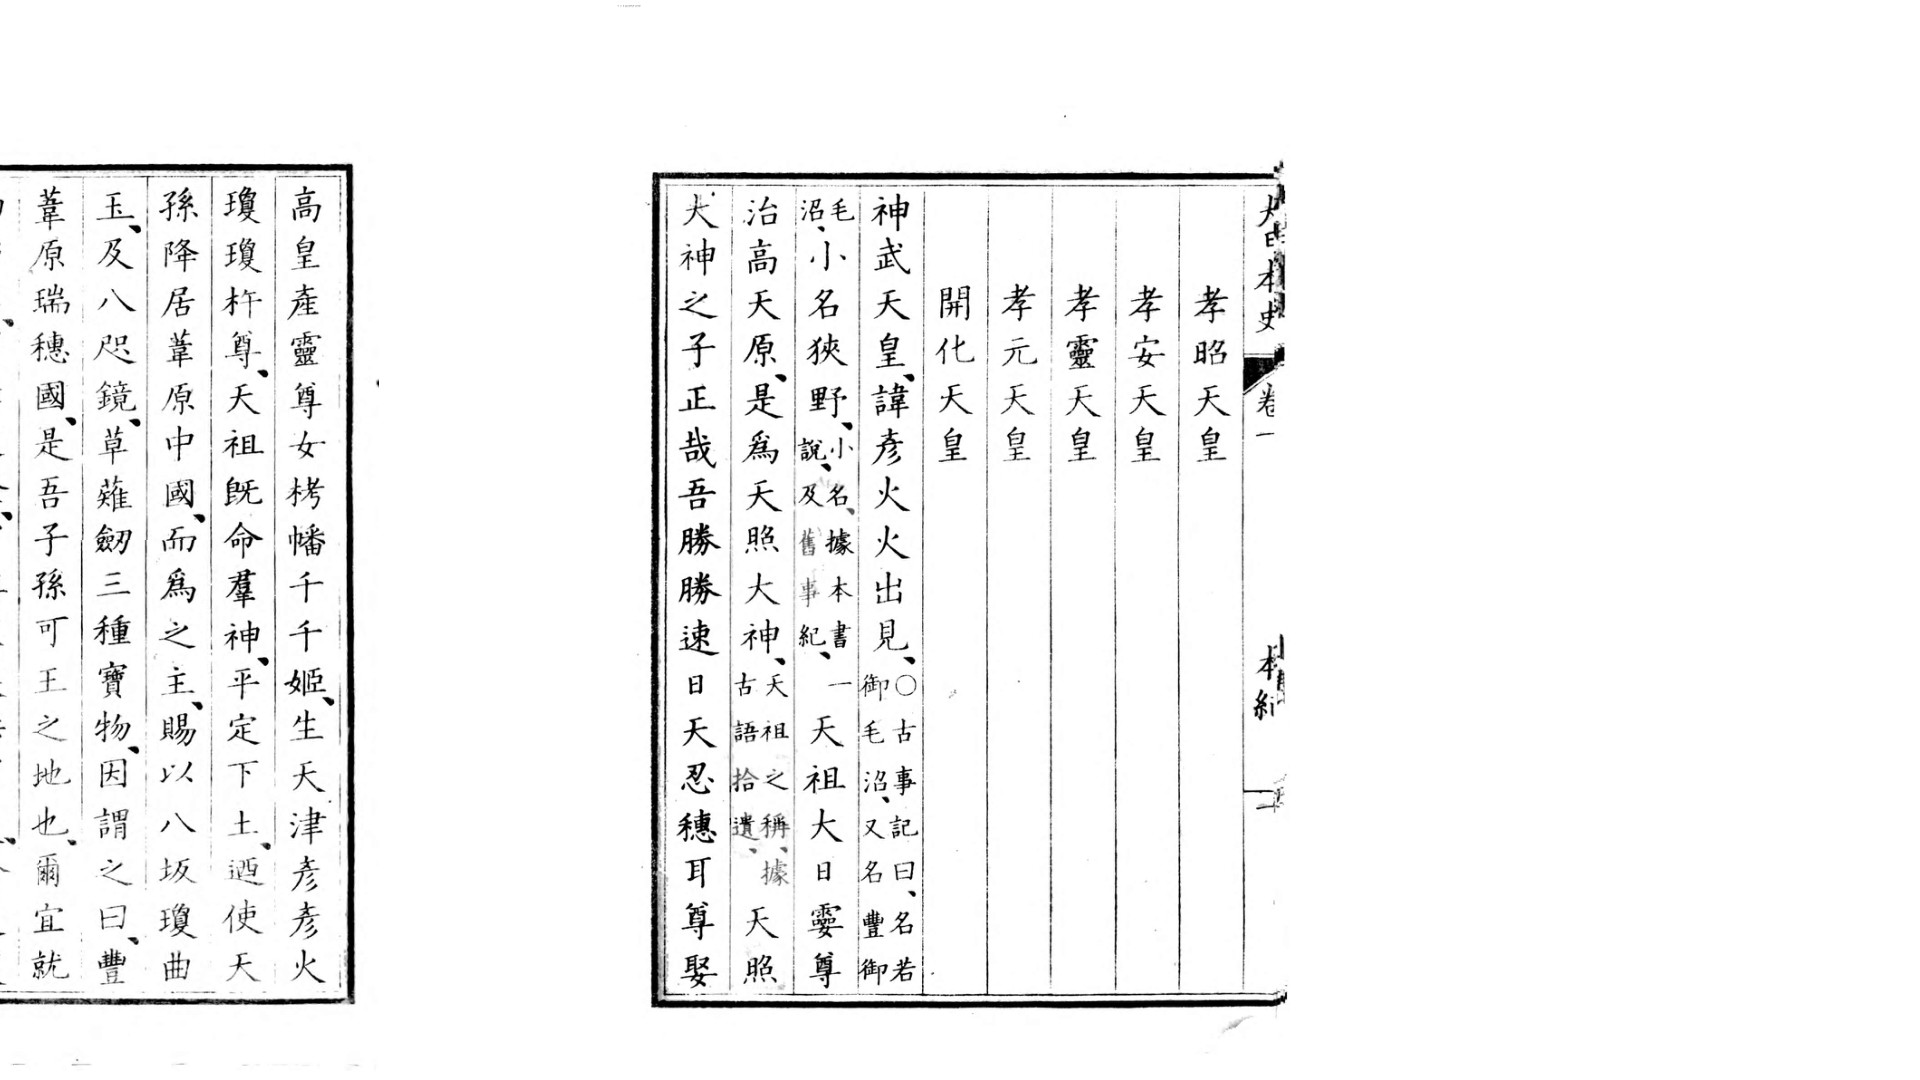 大日本史 卷一 本紀 二
孝昭天皇
孝安天皇
孝靈天皇
孝元天皇
開化天皇
神武天皇、諱彦火火出見、○古事記曰、名若御毛沼、又名豐御
毛沼、小名狹野、小名、據本書一說、及舊事紀、天祖大日孁尊
治高天原、是爲天照大神、天祖之稱、據古語拾遺、天照
大神之子正哉吾勝勝速日天忍穗耳尊娶
高皇產靈尊女栲幡千千姬、生天津彦彦火
瓊瓊杵尊、天祖既命羣神、平定下土、迺使天
孫降居葦原中國、而爲之主、賜以八坂瓊曲
玉、及八咫鏡、草薙劒三種寶物、因謂之曰、豐
葦原瑞穗國、是吾子孫可王之地也、爾宜就